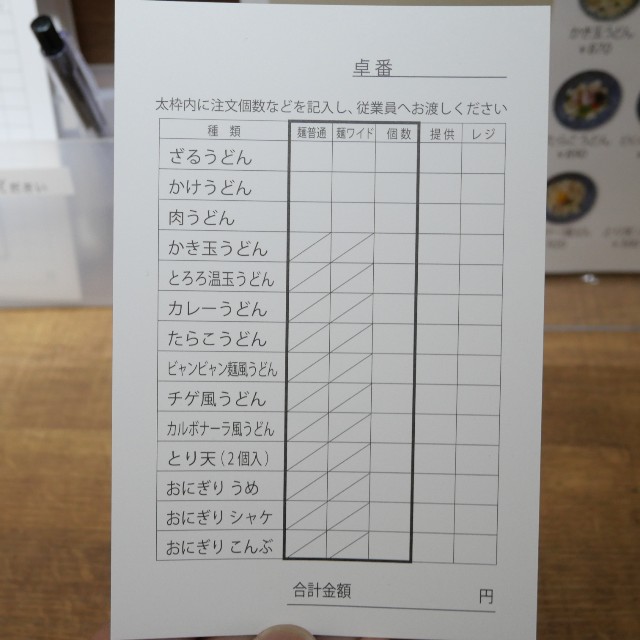 卓番
太枠内に注文個数などを記入し、従業員へお渡しください
種類 麺普通 麺ワイド 個数 提供 レジ
ざるうどん
かけうどん
肉うどん
かき玉うどん
とろろ温玉うどん
カレーうどん
たらこうどん
ビャンビャン麺風うどん
チゲ風うどん
カルボナーラ風うどん
とり天（2個入）
おにぎり うめ
おにぎり シャケ
おにぎり こんぶ
合計金額 円
ださい
かき玉うどん
¥870
たらこうどん